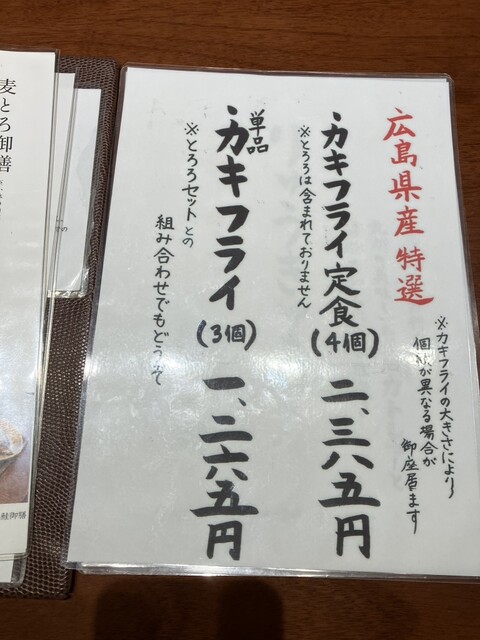 広島県産 特選
※カキフライの大きさにより
個数が異なる場合が
御座居ます
・カキフライ定食(4個) 二、三八五円
※とろろは含まれておりません
・単品カキフライ(3個) 一、二六五円
※とろろセットとの
組み合わせでもどうぞ
麦とろ御膳
鮭御膳